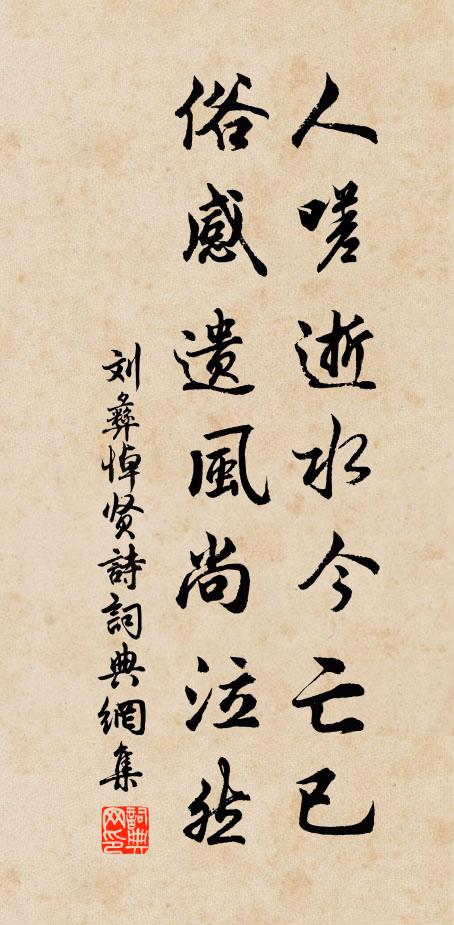 人嗟逝水今亡已
俗感遗風尚泣然
刘彝悼贤詩詞典網集
詞典
网印